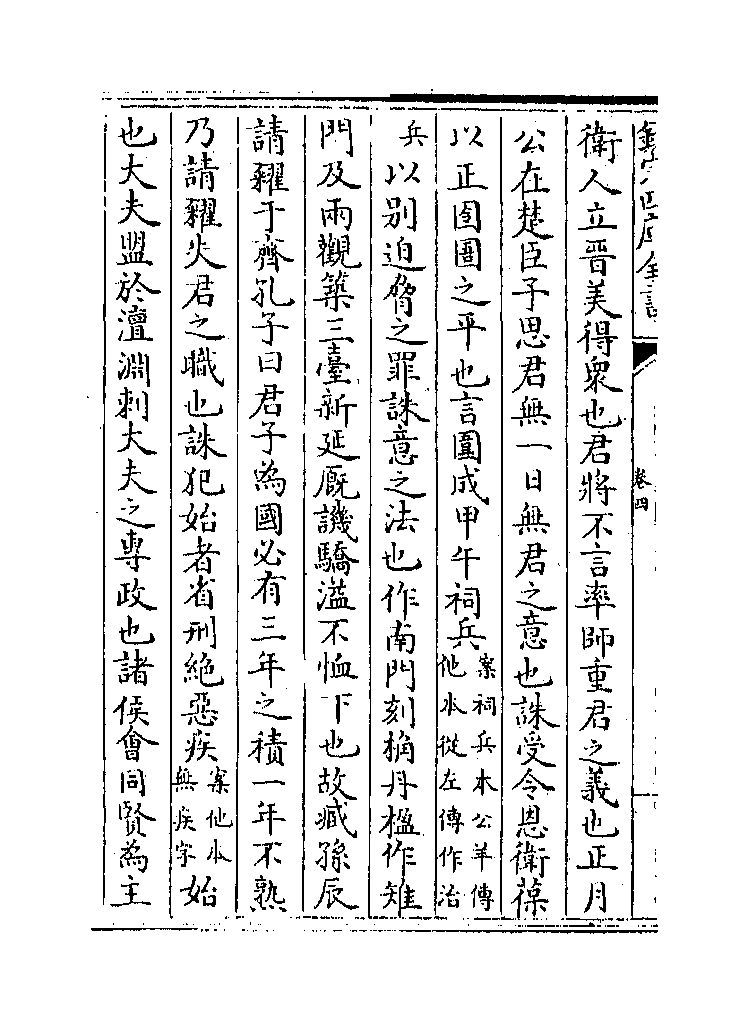 欽定四庫全書
卷四
衛人立晉美得衆也君將不言率師重君之義也正月
公在楚臣子思君無一日無君之意也誅受令恩衛葆
以正囹圄之平也言圍成甲午祠兵案祠兵本公羊傳他本從左傳作治
兵以别迫脅之罪誅意之法也作南門刻桷丹楹作雉
門及兩觀築三臺新延厩譏驕溢不恤下也故臧孫辰
請糴于齊孔子曰君子為國必有三年之積一年不熟
乃請糴失君之職也誅犯始者省刑絶惡疾案他本無疾字始
也大夫盟於澶淵刺大夫之専政也諸侯會同賢為主